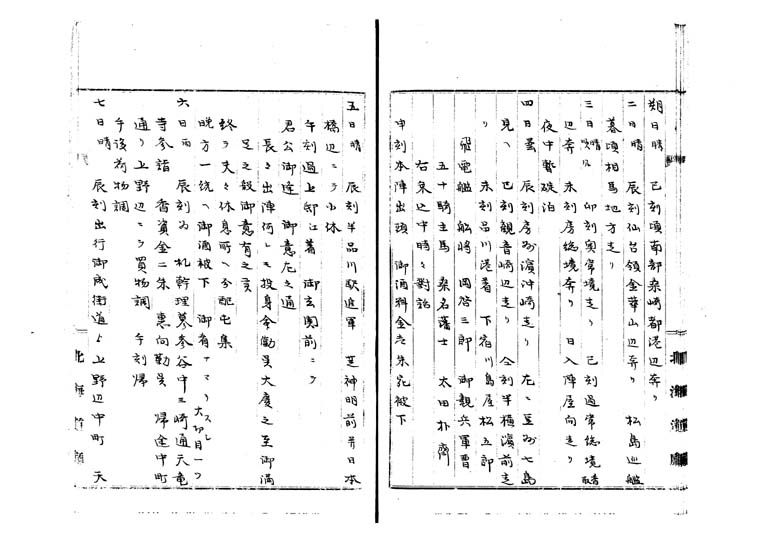 朔日晴 巳刻頃南部桑崎都港辺奔り
二日晴 辰刻仙台領金華山辺奔り 松島巡艦
暮頃相馬地方走り
三日晴 卯刻奥常境走り 巳刻過常総境
辺奔 未刻房総境奔り 日入陣屋向走り
夜中暫碇泊
四日曇 辰刻房州濱沖崎走り 左ニ豆州七島
見ヘ 巳刻観音崎辺走り 仝刻半横濱前走
り 未刻品川港着 下宿川島屋松五郎
飛電艦 船将 岡啓三郎 御親兵軍曹
五十騎主馬 桑名藩士 太田朴齋
右乗込中時々對話
申刻本陣出頭 御酒料金壱朱宛被下
五日晴 辰刻半品川駅進軍 芝神明前并日本
橋辺ニテ小休
午刻過上邸江著 御玄関前ニテ
君公御逢 御意左之通
長々出陣何レモ投身命勤呉大慶之至御満
足之段御意有之
終テ夫々休息所ヘ分配屯集
晩方一統ヘ御酒被下 御肴
六日雨 辰刻為 札幹理墓参谷中三崎通天竜
寺参詣 香資金二朱 惠向勤呉 帰途中町
通り上野辺ニテ買物調 午刻帰
七日晴 辰刻出行御成街道ゟ上野辺中町 天
午後為物調